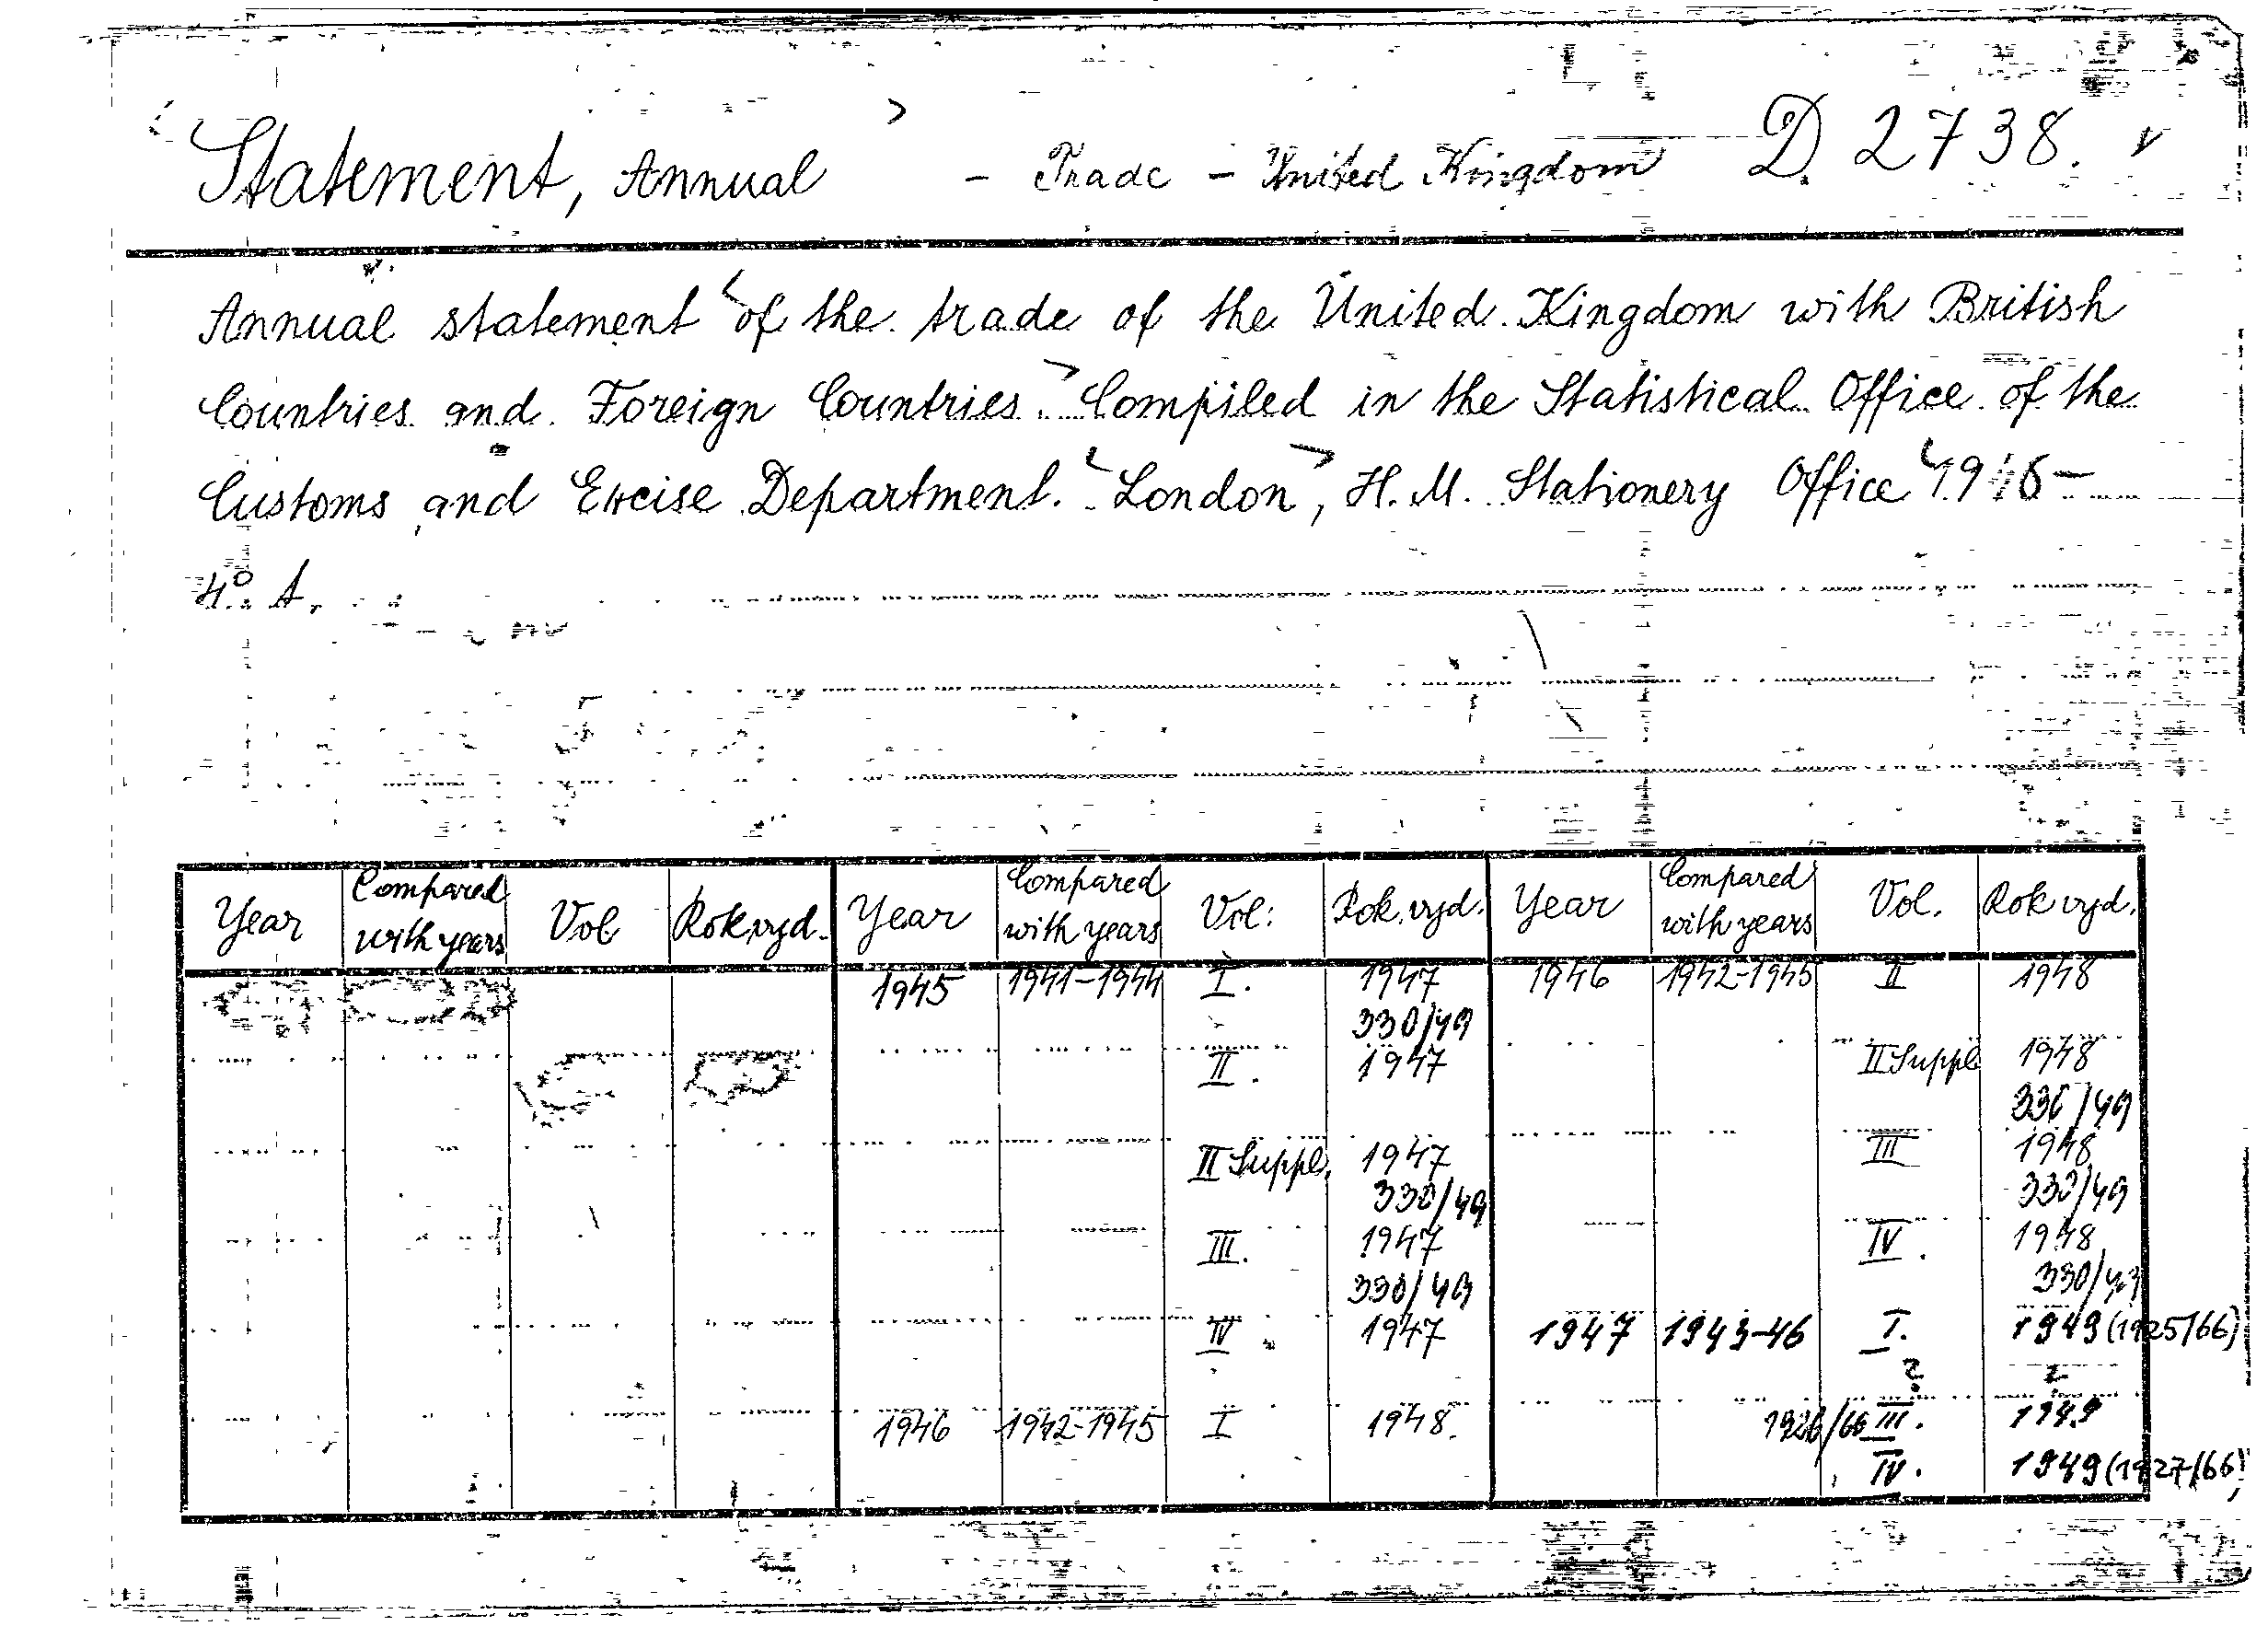 Statement, Annual - Trade - United Kingdom D 2738.
Annual statement of the trade of the United Kingdom with British
Countries and Foreign Countries. Compiled in the Statistical Office of the
Customs and Excise Department. London, H. M. Stationery Office
4°
Year Compared with years Vol Rok vyd. Year Compared with years Vol. Rok vyd. Year Compared with years Vol. Rok vyd.
1945 1941-1944 I. 1947 1946 1942-1945 II 1948
330/49
II. 1947 II Suppl 1948
330/49
II Suppl. 1947 III 1948
330/49 330/49
III. 1947 IV. 1948
330/49 330/49
IV 1947 1947 1943-46 I. 1949 (1925/66)
?
1946 1942-1945 I 1948. 1926/66 III. 1949
IV. 1949 (1927/66)